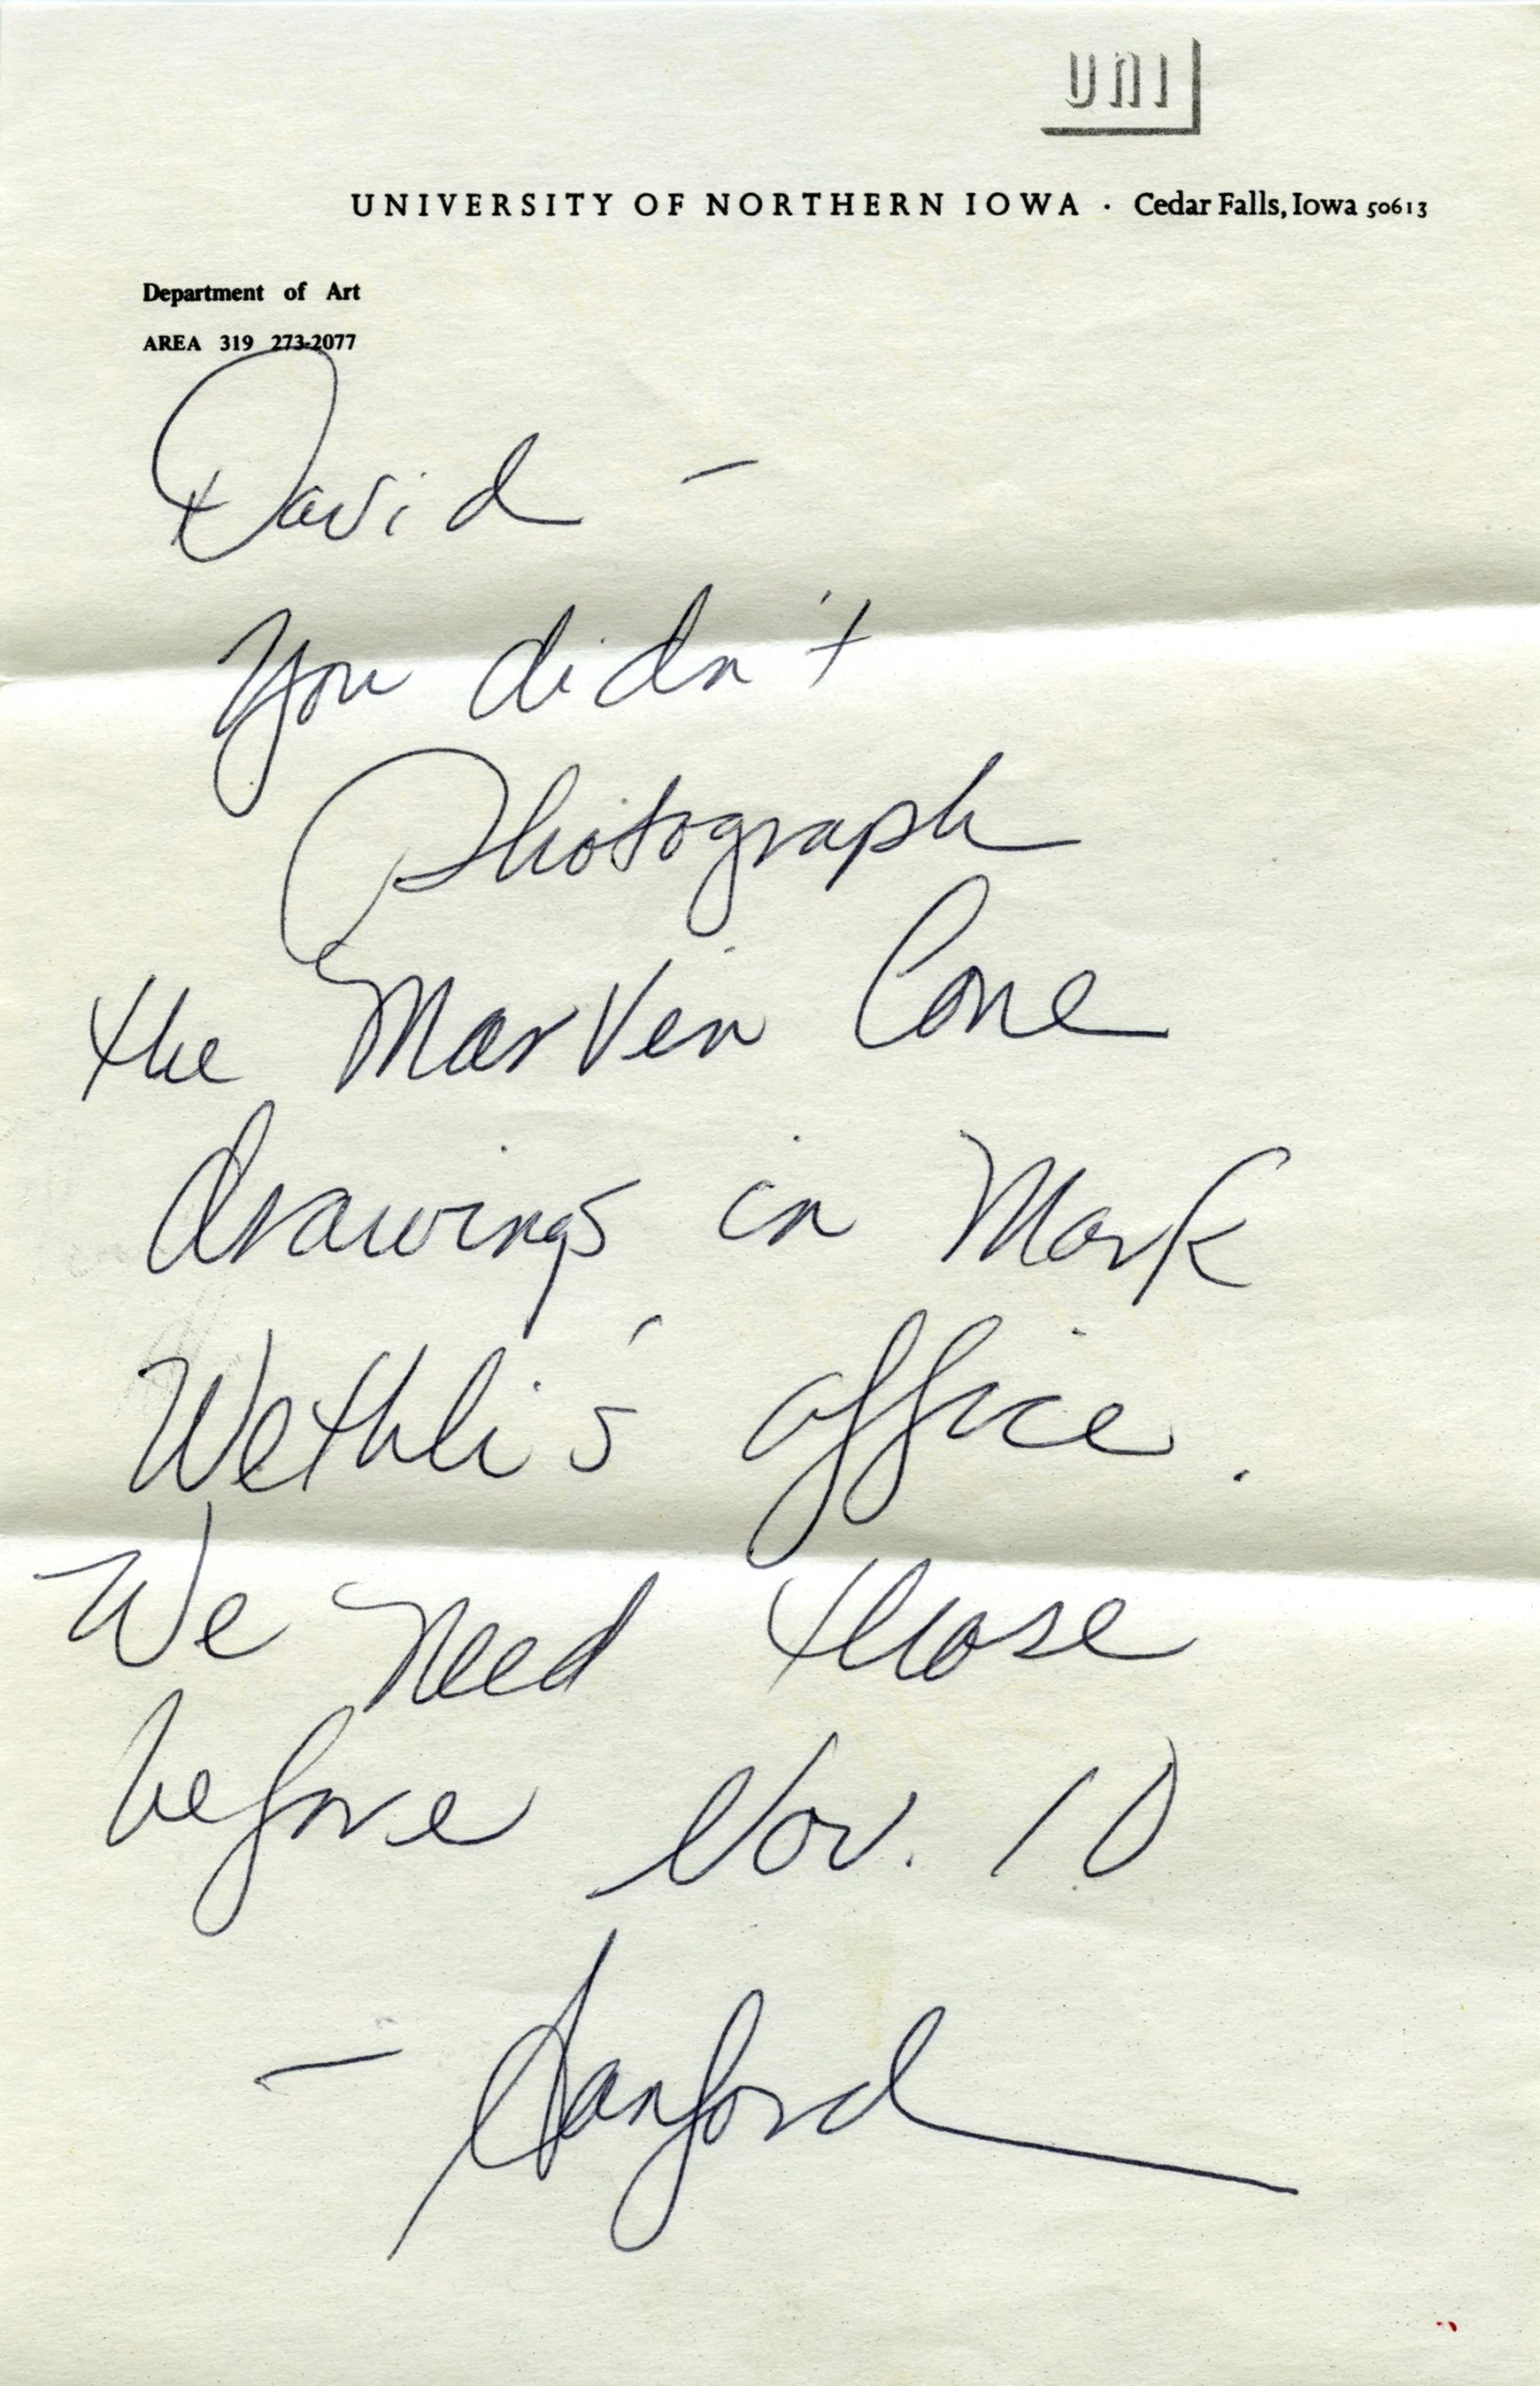 uni
UNIVERSITY OF NORTHERN IOWA · Cedar Falls, Iowa 50613
Department of Art
AREA 319 273-2077
David –
You didn't
Photograph
the Marvin Cone
drawings in Mark
Wethli's office.
We need those
before Nov. 10
– Sanford